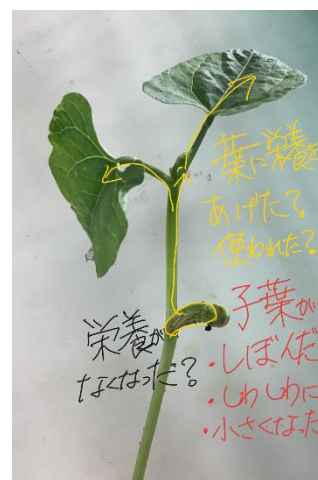 葉に栄養を
あげた？
使われた？
子葉が
・しぼんだ
・しわしわに
・小さくなった
栄養が
なくなった？